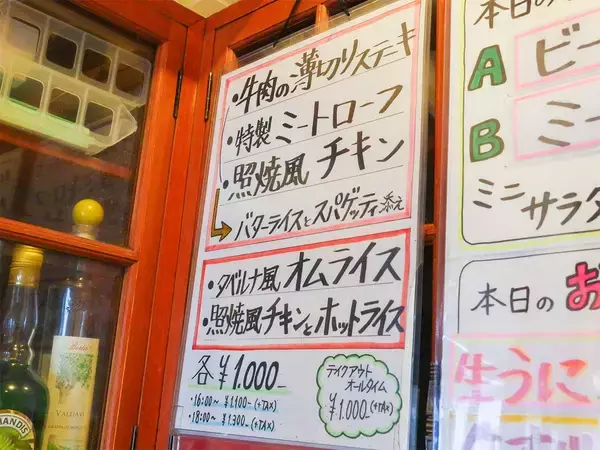 ・牛肉の薄切りステーキ
・特製 ミートローフ
・照焼風 チキン
→ バターライスとスパゲッティ添え
・タベルナ風 オムライス
・照焼風チキンとホットライス
各 ¥1.000-
・16:00〜 ¥1.100-(+TAX)
・18:00〜 ¥1.300-(+TAX)
テイクアウト
オールタイム
¥1.000-(+TAX)
本日の
A ビー
B ミー
ミニ
サラダ
本日のお
生うに
VALDAVI
ANDIS